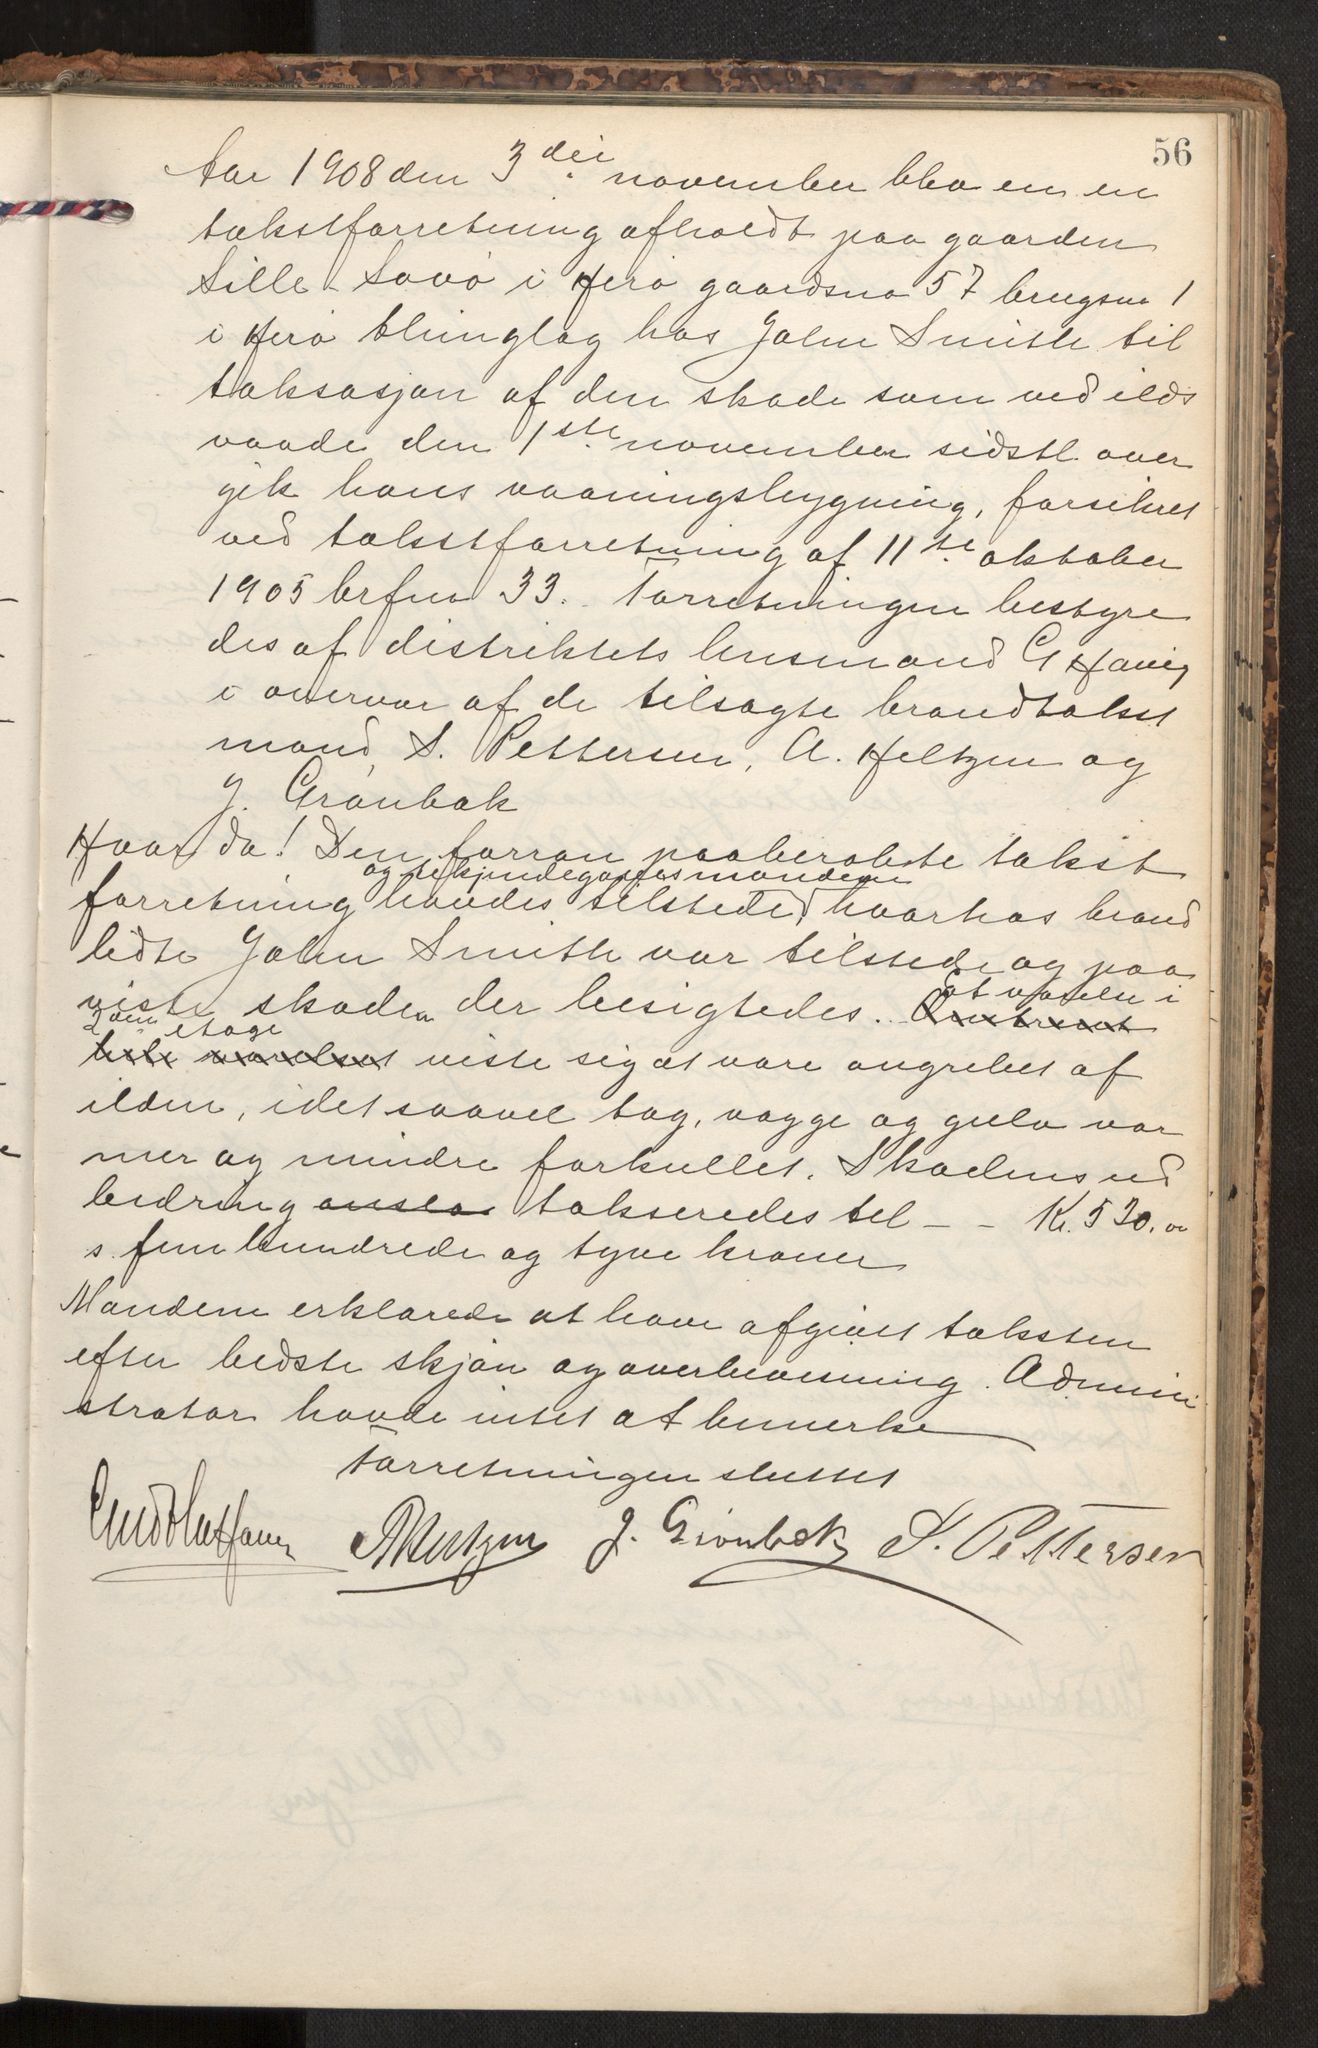 56
Aar 1908 den 3die november blev en en
takstforretning afholdt paa gaarden
Lille Sövö i Herö gaardsno 57 brugsno 1
i Herö thinglag hos John Smith til
taksasjon af den skade som ved ilds
vaade den 1ste november sidstl. over
gik hans vaaningsbygning, forsikret
ved takstforretning af 11te oktober
1905 brfno 33. Forretningen bestyre
des af distriktets lensmand G Havig
i overvær af de tilsagte brandtakst
mænd, S. Pettersen, A. Heltzen og
J. Grønbæk
Hvor da! Den forran paaberobte takst
og de kjendegottesmændene
forretning havdes tilstede, hvorhos brand
lidte John Smith var tilstede og paa
viste skaden der besigtedes. Et værelse i
2den etage
viste sig at være angrebet af
ilden, idet saavel tag, vægge og gulv var
mer og mindre forkullet. Skadens ud
bedring ansea takseredes til - - Kr. 520.00
s. fem hundrede og tyve kroner
Mændene erklærede at have afgivet taksten
efter bedste skjön og overbevisning. Admini
strator havde intet at bemerke
Forretningen sluttet
A Heltzen J. Grönbæk S. Pettersen